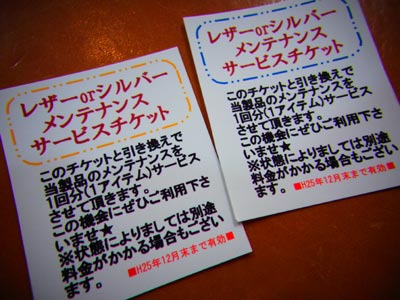 レザーorシルバー
メンテナンス
サービスチケット
このチケットと引き換えで
当製品のメンテナンスを
1回分(1アイテム)サービス
させて頂きます。
この機会にぜひご利用下さ
いませ★
※状態によりましては別途
料金がかかる場合もござい
ます。 ■H25年12月末まで有効■
レザーorシルバー
メンテナンス
サービスチケット
このチケットと引き換えで
当製品のメンテナンスを
1回分(1アイテム)サービス
させて頂きます。
この機会にぜひご利用下さ
いませ★
※状態によりましては別途
料金がかかる場合もござい
ます。 ■H25年12月末まで有効■